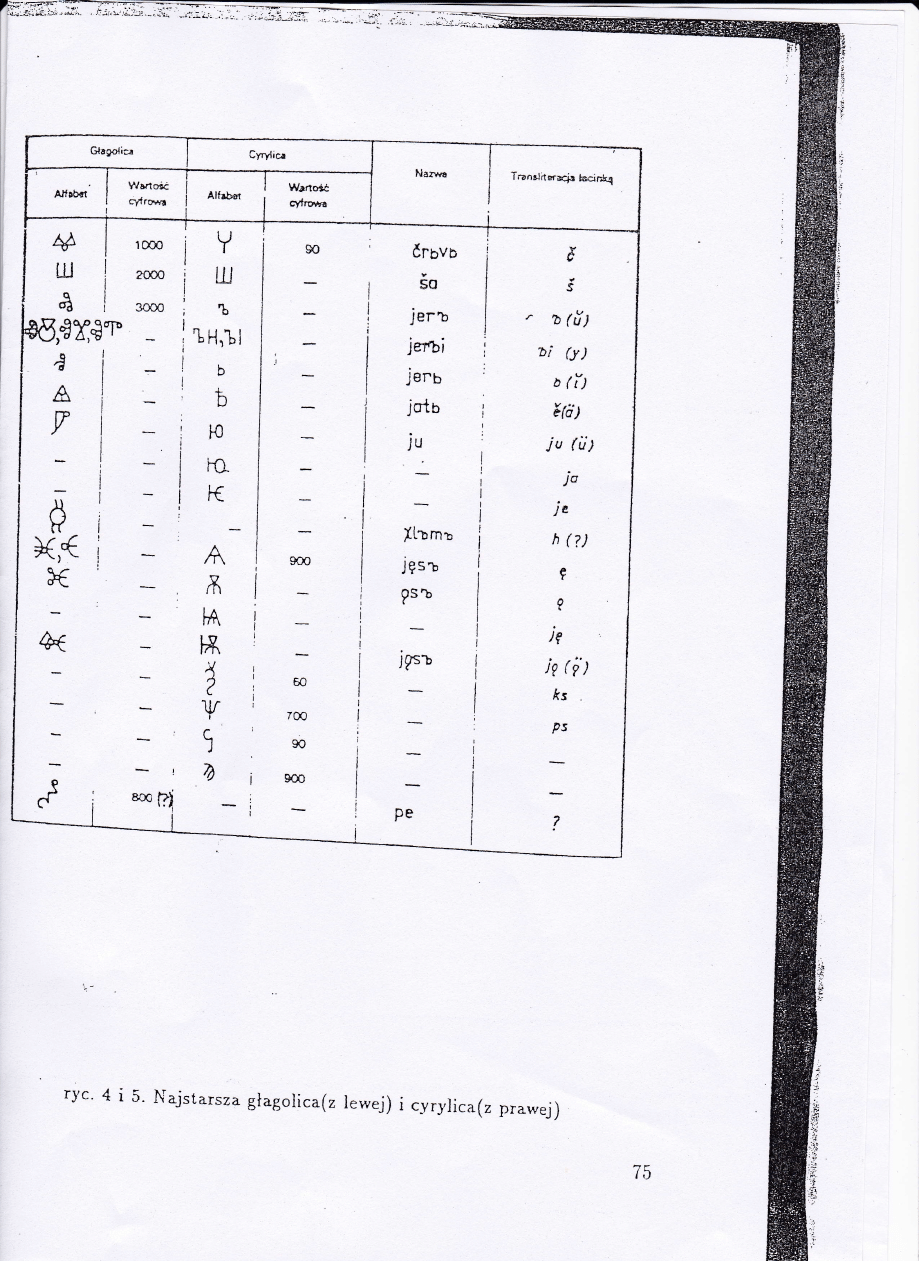 Głagolica Cyrylica Nazwa Transliteracja łacinką
Alfabet Wartość cyfrowa Alfabet Wartość cyfrowa
Ⱍ 1000 Ч 90 črьvь č
Ш 2000 Ш — ša š
Ⱏ 3000 ъ — jerъ ъ (ŭ)
— ЪН, ЪІ — jerъi ъi (y)
Ⱐ — ь — jerь ь (ĭ)
Ⱑ — ѣ — jatь ě(ä)
Ⱓ — Ю — ju ju (ü)
— — Ꙗ — — ja
— — Ѥ — — je
— — — χlъmъ h (?)
— Ѧ 900 jęsъ ę
Ⱘ — Ѫ — ǫsъ ǫ
— — Ѩ — — ję
Ⱙ — Ѭ — jǫsъ jǫ (ǫ̈)
— — Ѯ 60 — ks
— — Ѱ 700 — ps
— — Ҁ 90 — —
— — Ѡ 900 — —
800 (?) — — pe ?
ryc. 4 i 5. Najstarsza głagolica(z lewej) i cyrylica(z prawej)
75